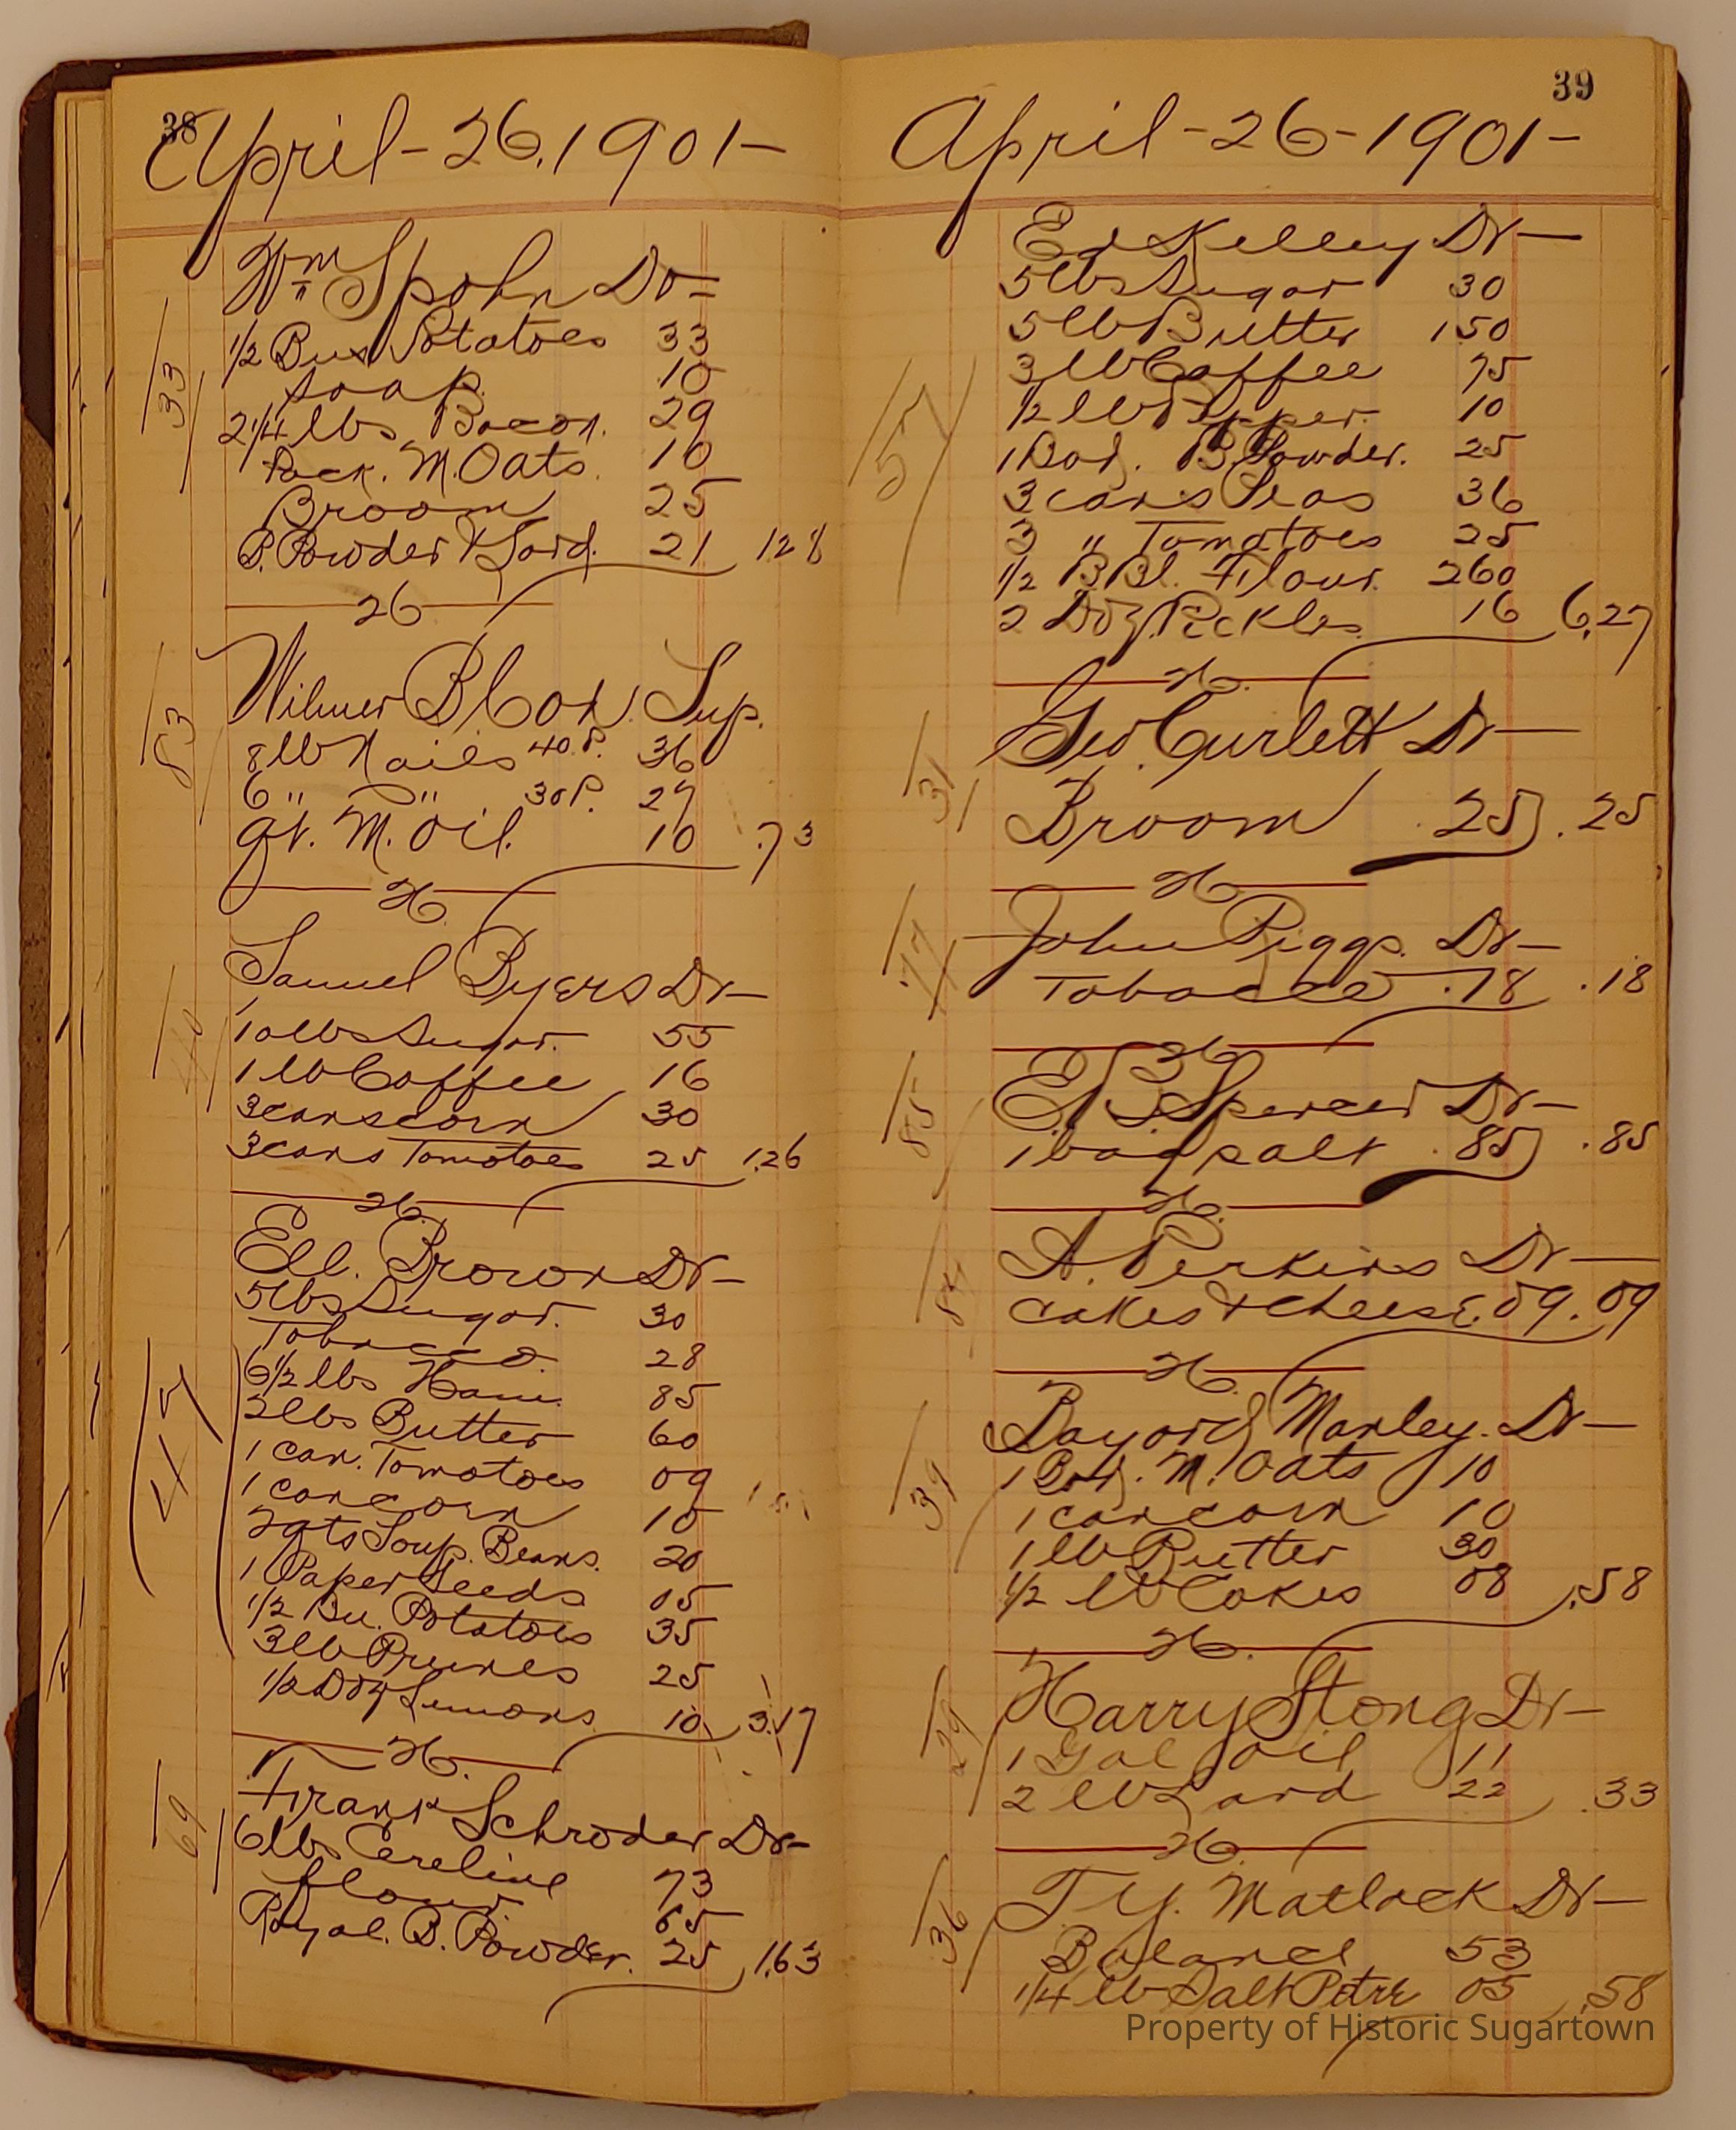 38
April-26.1901-
Wm Spohn Dr-
33
1/2 Bus Potatoes 33
Soap. 10
2 1/4 lbs Bacon. 29
Pack. M.Oats. 10
Broom 25
B.Powder & Lard. 21 128
26
Wilmer B Cox. Sup.
53
8 lb Nails 40.P. 36
6 " " 30P. 27
qt. M. Oil. 10 .73
26.
Samuel Byers Dr-
40
10lbs Sugar. 55
1 lb Coffee 16
3cans corn 30
3cans Tomatoes 25 1.26
26.
Ell. Brown Dr-
47
5lbs Sugar. 30
Tobacco. 28
6 1/2 lbs Ham. 85
2lbs Butter 60
1 can. Tomatoes 09
1 can corn 10
2qts Soup. Beans. 20
1 Paper Seeds 05
1/2 Bu. Potatoes 35
3lb Prunes 25
1/2 Doz Lemons 10 3.17
26.
Frank Schroder Dr-
69
6lbs Cereline 73
flour 65
Royal. B. Powder. 25 1.63
39
April-26-1901-
Ed Kelley Dr-
57
5lbs Sugar 30
5 lb Butter 150
3 lb Coffee 75
1/2 lb Pepper. 10
1 Box. B.Powder. 25
3 cans Peas 36
3 " Tomatoes 25
1/2 BBl. Flour. 260
2 Doz.Pickles 16 6.27
26.
Geo. Curlett Dr-
31
Broom 25 .25
26
John Riggs. Dr-
77
Tobacco .18 .18
26
E J Spencer Dr-
85
1 bag salt .85 .85
26.
A. Perkins Dr-
84
cakes & cheese. 09 .09
26.
Bayard Manley. Dr-
39
1 Box. M. Oats 10
1 can corn 10
1 lb Butter 30
1/2 lb Cakes 08 .58
26.
Harry Stong Dr-
29
1 Gal oil 11
2 lb Lard 22 .33
26.
T.Y. Matlack Dr-
36
Balance 53
1/4 lb Salt Petre 05 .58
Property of Historic Sugartown